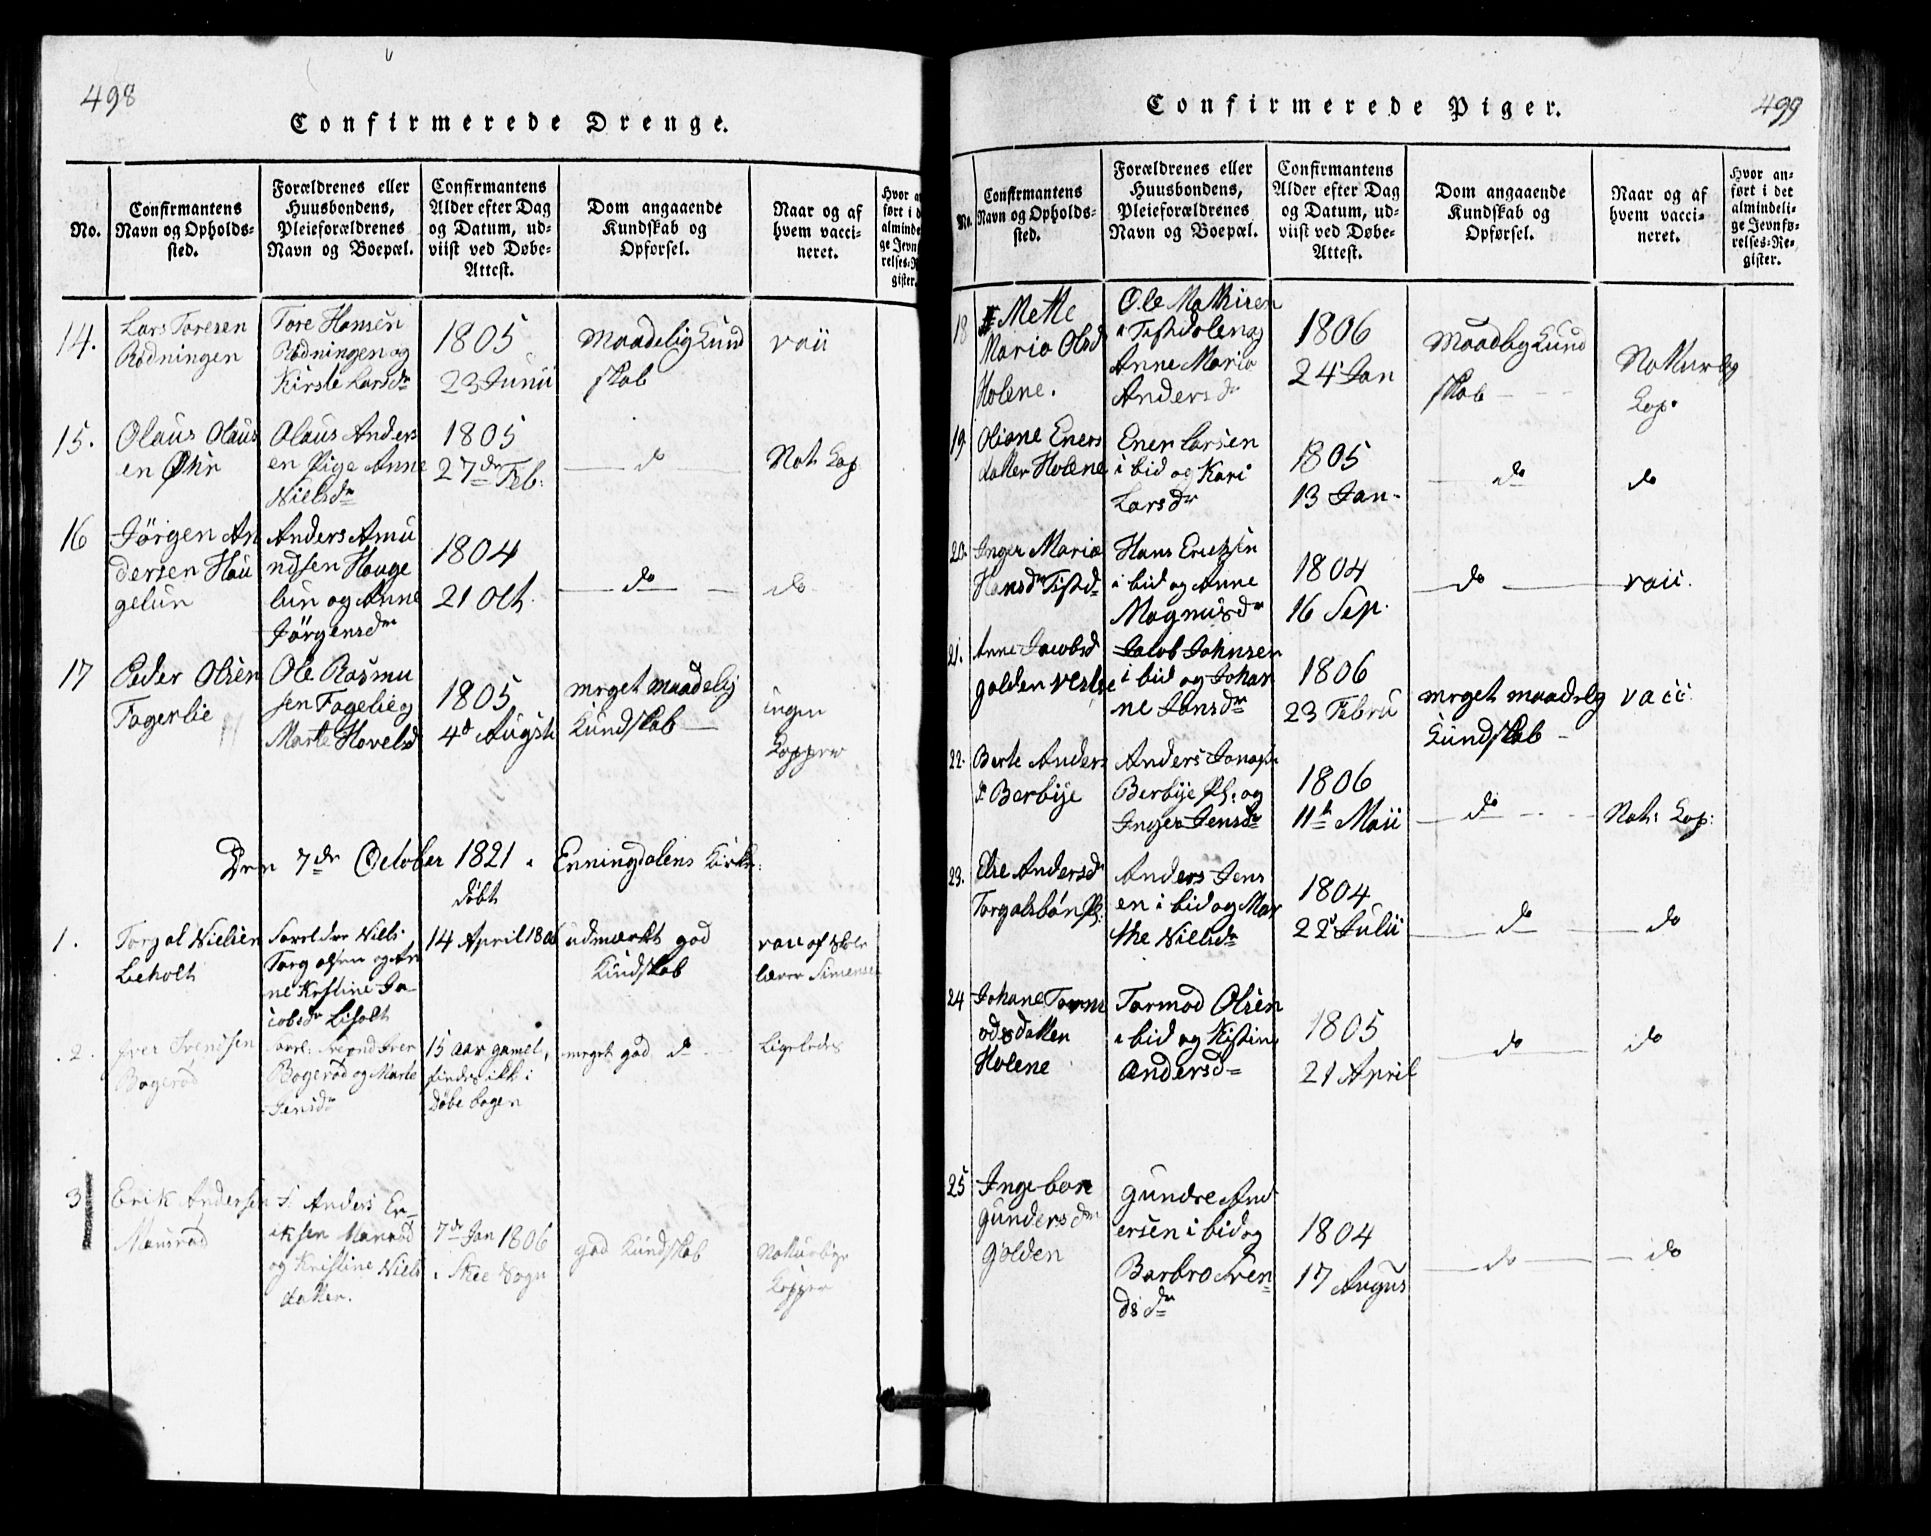 498
Confirmerede Drenge.
No.
Confirmantens
Navn og Opholds-
sted.
Forældrenes eller
Huusbondens,
Pleieforældrenes
Navn og Boepæl.
Confirmantens
Alder efter Dag
og Datum, ud-
viist ved Døbe-
Attest.
Dom angaaende
Kundskab og
Opførsel.
Naar og af
hvem vacci-
neret.
14.
Lars Toresen
Rødningen
Tore Hansen
Rødningen og
Kirste Larsdr
1805
23 Junii
Maadelig Kund
skab
vaii
15.
Olaus Olaus
en Øhr
Olaus Anders
en Pige Anne
Nielsdr
1805
27de Feb:
do
Nat: Kop
16
Jörgen An
dersen Hau
gelun
Anders Amu
ndsen Hauge
lun og Anne
Jörgensdr
1804
21 Oct.
do
do
17
Peder Olsen
Fagerlie
Ole Rasmu
sen Fagelie og
Marte Havelsd
1805
4d August
meget maadelig
Kundskab
ingen
Kopper
Den 7de October 1821 . Enningdalens Kirke:
døbt
1.
Torgal Nielsen
Leholt
Forældre Niels
Torgalsen og An
ne Kristine Ja-
cobsdr Liholt
14 April 1806
udmærket god
Kundskab
vaii af Skole
lærer Simensen
2.
Iver Svendsen
Bogerød
Foræl: Svend Iver
Bogerød og Marte
Jensdr
15 aar gamel,
findes ikke i
Døbe bogen
meget god do
Ligeledes
3
Erik Andersen
Mausrød
F: Anders Er-
iksen Mausrød
og Kristine Niels
datter.
7de Jan 1806
i Skee Sogn
god Kundskab
Naturlige
Kopper
499
Confirmerede Piger.
No.
Confirmantens
Navn og Opholds-
sted.
Forældrenes eller
Huusbondens,
Pleieforældrenes
Navn og Boepæl.
Confirmantens
Alder efter Dag
og Datum, ud-
viist ved Døbe-
Attest.
Dom angaaende
Kundskab og
Opførsel.
Naar og af
hvem vacci-
neret.
Hvor an-
ført i det
almindeli-
ge Jevnfø-
relses-Re-
gister.
18
Mette
Maria Olsd
Holene.
Ole Mathisen
i Tistedalen og
Anne Maria
Andersdr
1806
24 Jan
Maadlig Kund
skab
Naturlig
Kop.
19
Oliane Eners
datter Holene
Ener Larsen
i bid og Kari
Larsdr
1805
13 Jan-
do
do
20.
Inger Maria
Hansdr Tisted
Hans Ericksen
i bid og Anne
Magnusdr
1804
16 Sep.
do
vaii.
21.
Anne Jacobsd
Galden Vestre
Jacob Johnsen
i bid og Johan
ne Jansdr
1806
23 Febru
meget maadelg
Kundskab
vacc:
22.
Berte Anders
dr Berbye
Anders Jonas
Berbye Pl: og
Inger Jensdr
1806
11te Maii
do
Nat: Kop:
23.
Else Andersdr
Torgalsbön Pl:
Anders Jens
en i bid og Mar
the Nielsdr
1804
22d Julii
do
do
24
Johane Torm
odsdatter
Holene
Tormod Olsen
i bid og Kistine
Andersd
1805
21 April
do
do
25
Ingebor
Gundersdr
Galden
Gundre And
ersen i bid og
Barbro Sven
dsdr
1804
17 Augus
do
do